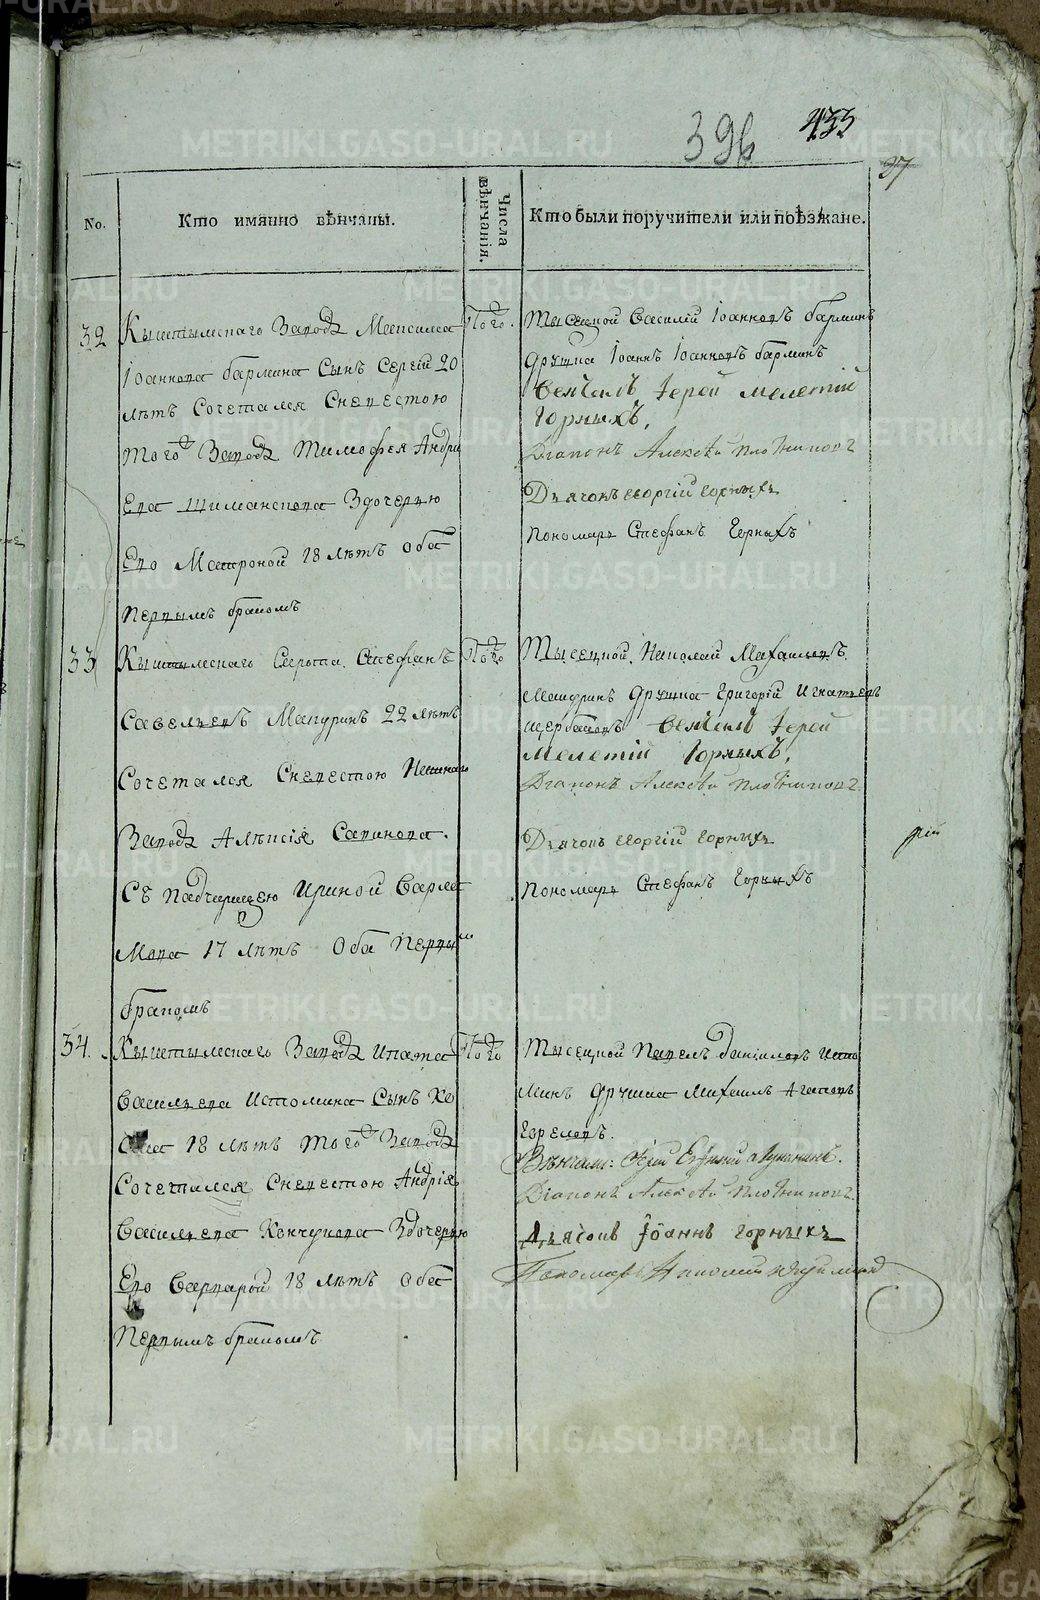 396 433
37
No.
Кто имянно вѣнчаны.
Числа вѣнчанія.
Кто были поручители или поѣзжане.
32
Кыштымскаго Завода Максима
Іоаннова бармина Сынъ Сергій 20
лѣтъ Сочетался Сневестою
того Завода Тимофея Андри
Ева Шиманскова Здочерью
Ево Матроной 18 лѣтъ Оба
Первымъ бракомъ
Того
Тысецкой Василій Іоанновъ барминъ
Дружка Іоаннъ Іоанновъ барминъ
Венчалъ Іерей Мелетій
Горныхъ,
Діаконъ Алексѣй Плотниковъ
Дьячокъ георгій горныхъ
Пономарь Стефанъ Горныхъ
33
Кыштымскаго Сирота Стефанъ
Савельевъ Мапуринъ 22 лѣтъ
Сочетался Сневестою
Завода Алѣксія Савинова
Съ Падчерицею Ириной Варла
Мова 17 лѣтъ Оба Первым
бракомъ
Того
Тысецкой Николай Михайловъ
Дружка Григорій Игнатьевъ
щербаковъ Венчалъ Іерей
Мелетій Горныхъ,
Діаконъ Алексѣй Плотниковъ
Дьячокъ георгій горныхъ
Пономарь Стефанъ Горныхъ
34.
Кыштымскаго Завода Ипата
Васильева Истомина Сынъ
18 лѣтъ того Завода
Сочетался Сневестою Андрія
Васильева Здочерью
Ево Варварой 18 лѣтъ Оба
Первымъ бракомъ
Того
Тысецкой Павелъ Даниловъ Исто
Минъ Дружка Михаилъ Агаповъ
Горемовъ.
Вѣнчалъ: Іерей
Діаконъ Алексѣй Плотниковъ
Дьячокъ Іоаннъ горныхъ
Пономарь